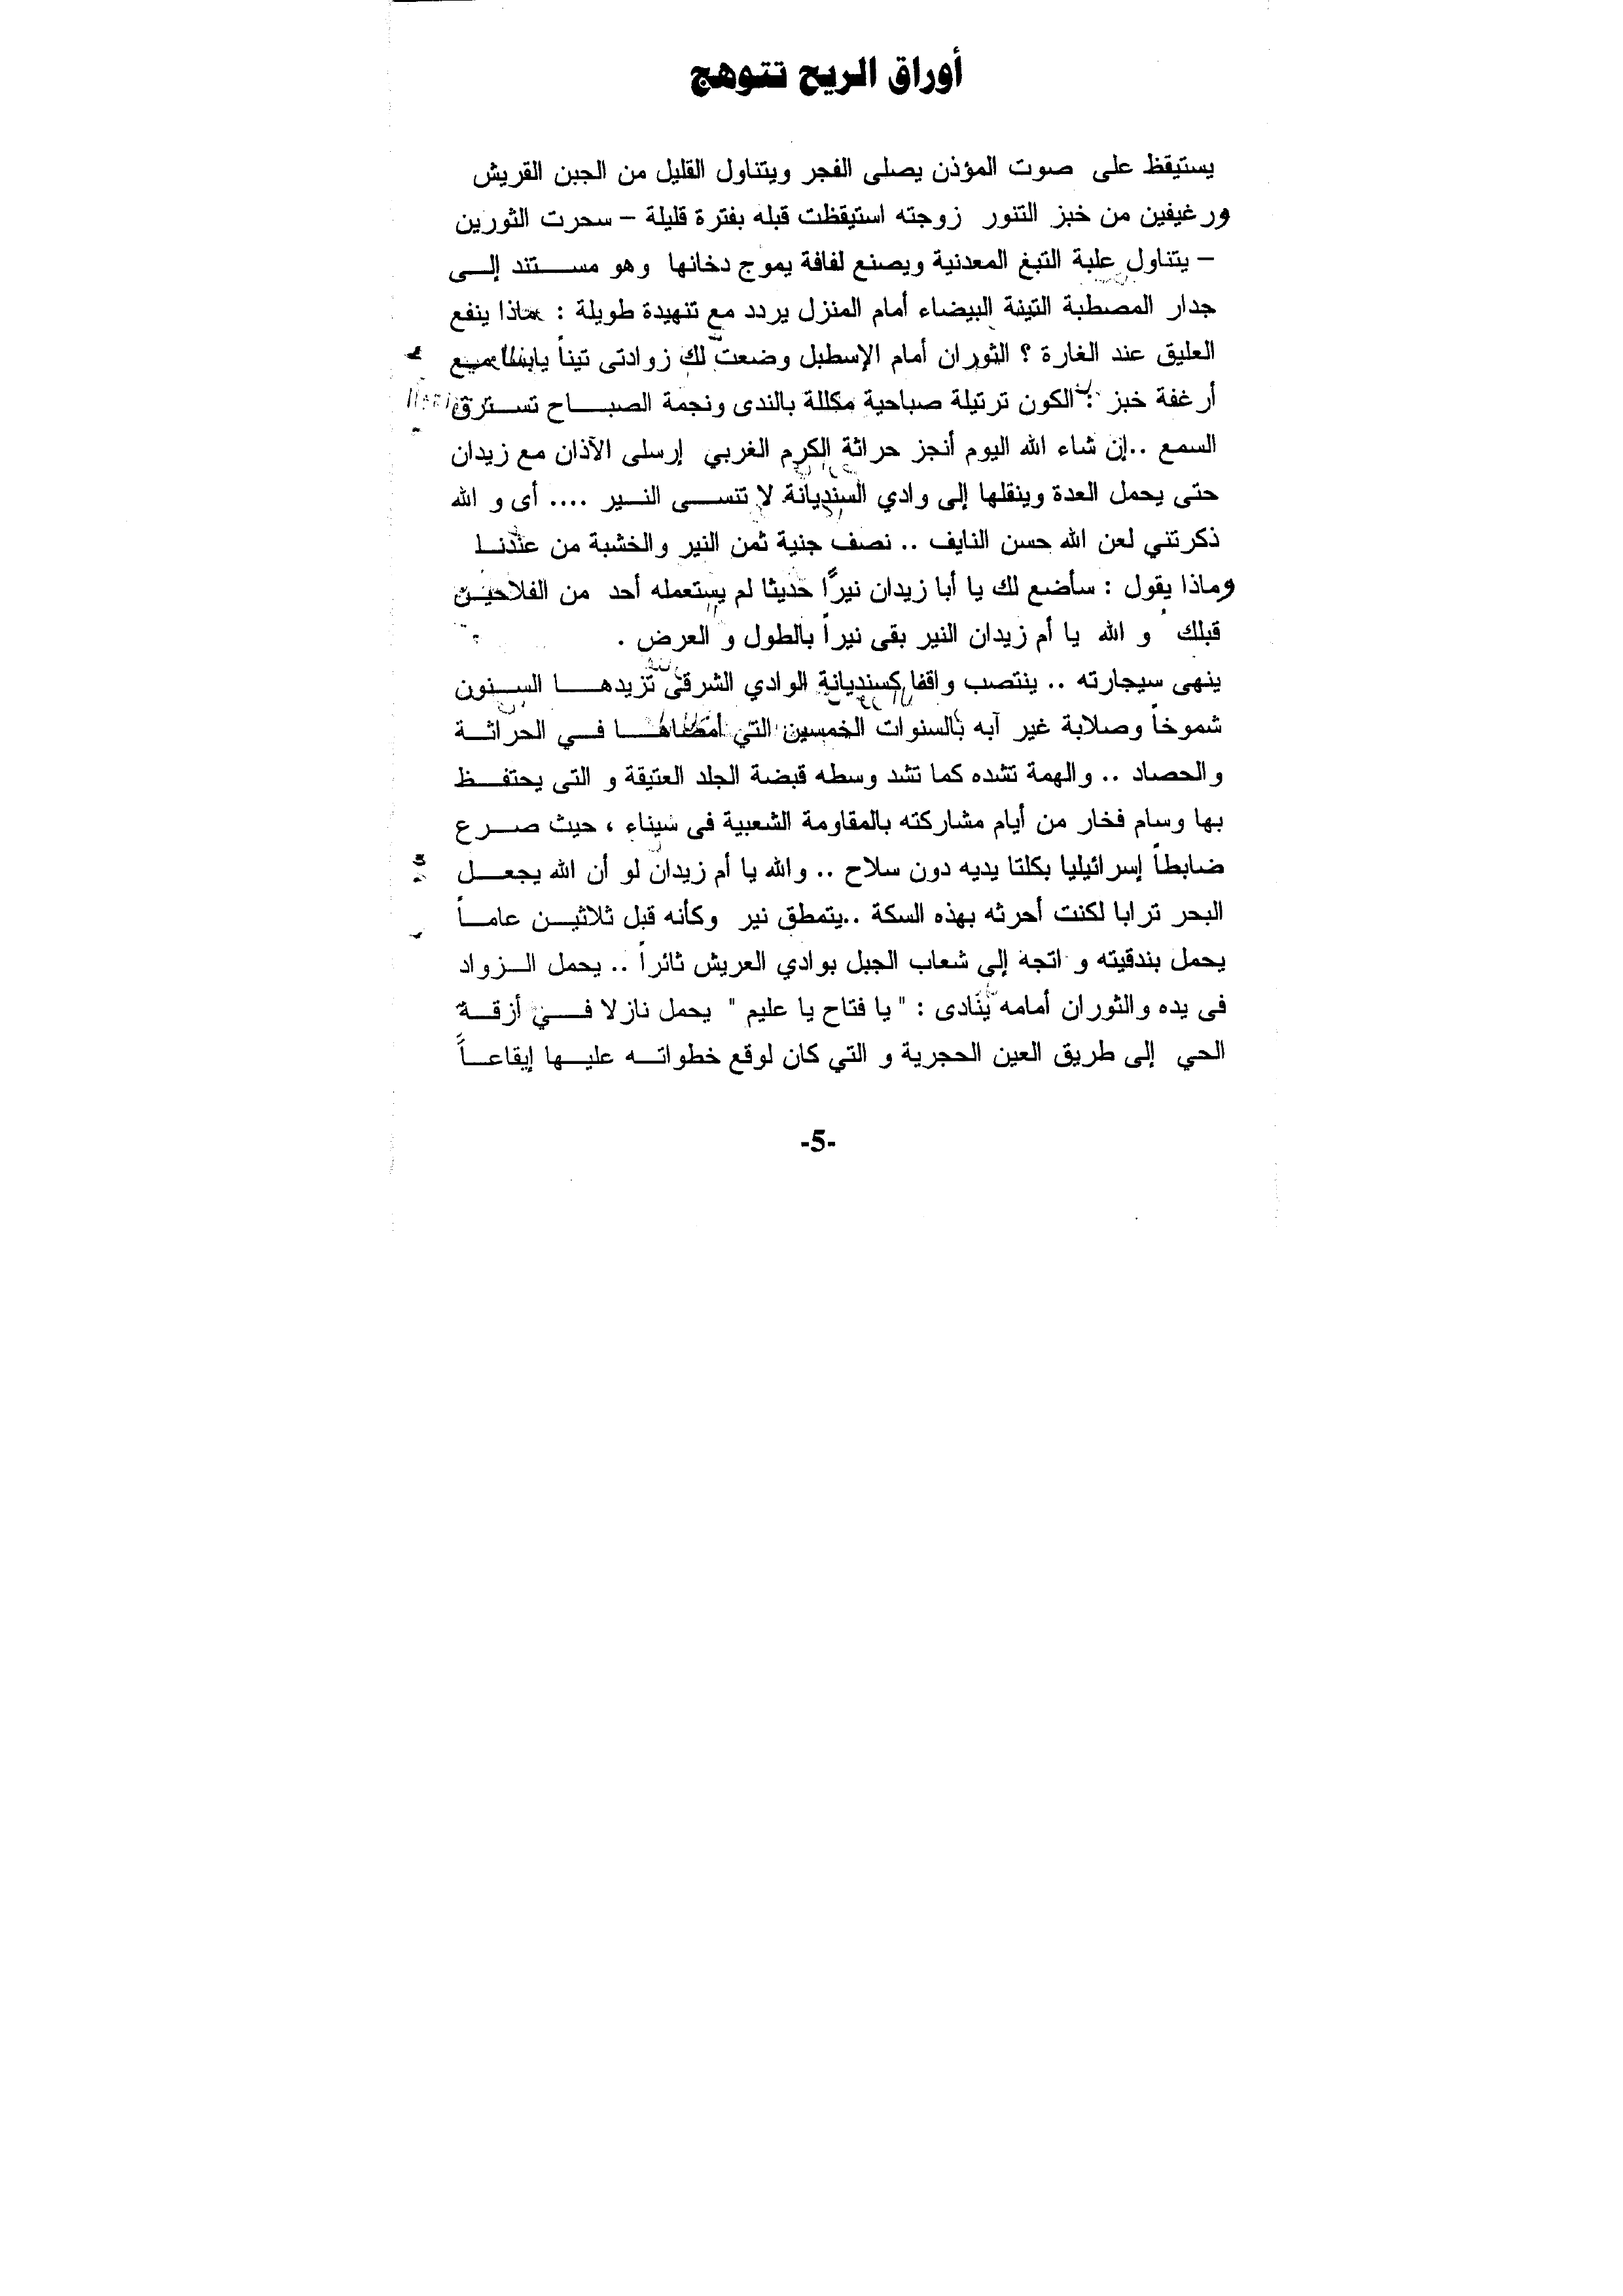 أوراق الريح تتوهج
يستيقظ على صوت المؤذن يصلى الفجر ويتناول القليل من الجبن القريش
ورغيفين من خبز التنور زوجته استيقظت قبله بفترة قليلة – سحرت الثورين
– يتناول علبة التبغ المعدنية ويصنع لفافة يموج دخانها وهو مستند إلى
جدار المصطبة التينة البيضاء أمام المنزل يردد مع تنهيدة طويلة : ماذا ينفع
العليق عند الغارة ؟ الثوران أمام الإسطبل وضعت لك زوادتى تيناً يابسا ميع
أرغفة خبز : الكون ترتيلة صباحية مكللة بالندى ونجمة الصباح تسترق
السمع ..إن شاء الله اليوم أنجز حراثة الكرم الغربي إرسلى الآذان مع زيدان
حتى يحمل العدة وينقلها إلى وادي السنديانة لا تنسى النير .... أى و الله
ذكرتني لعن الله حسن النايف .. نصف جنية ثمن النير والخشبة من عندنا
وماذا يقول : سأضع لك يا أبا زيدان نيرًا حديثا لم يستعمله أحد من الفلاحين
قبلك و الله يا أم زيدان النير بقى نيراً بالطول و العرض .
ينهى سيجارته .. ينتصب واقفا كسنديانة الوادي الشرقى تزيدها السنون
شموخاً وصلابة غير آبه بالسنوات الخمسين التي أمضاها في الحراثة
والحصاد .. والهمة تشده كما تشد وسطه قبضة الجلد العتيقة و التى يحتفظ
بها وسام فخار من أيام مشاركته بالمقاومة الشعبية فى سيناء ، حيث صرع
ضابطاً إسرائيليا بكلتا يديه دون سلاح .. والله يا أم زيدان لو أن الله يجعل
البحر ترابا لكنت أحرثه بهذه السكة ..يتمطق نير وكأنه قبل ثلاثين عاماً
يحمل بندقيته و اتجة إلى شعاب الجبل بوادي العريش ثائراً .. يحمل الزواد
فى يده والثوران أمامه ينادى : " يا فتاح يا عليم " يحمل نازلا في أزقة
الحي إلى طريق العين الحجرية و التي كان لوقع خطواته عليها إيقاعاً
-5-